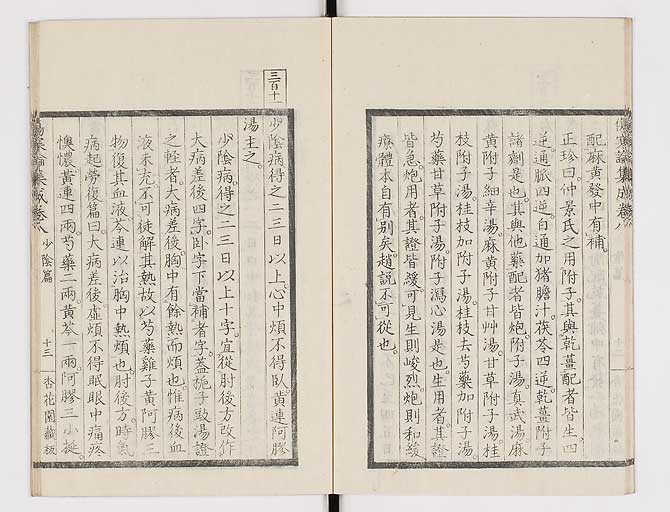 配麻黄發中有補
正珍曰仲景氏之用附子其與乾薑配者皆生四
逆通脈四逆白通加猪膽汁茯苓四逆乾薑附子
諸劑是也其與他藥配者皆炮附子湯真武湯麻
黄附子細辛湯麻黄附子甘艸湯甘草附子湯桂
枝附子湯桂枝加附子湯桂枝去芍藥加附子湯
芍藥甘草附子湯附子瀉心湯是也生用者其證
皆急炮用者其證皆緩可見生則峻烈炮則和緩
療體本自有別矣趙説不可從也
三百十一
少陰病得之二三日以上心中煩不得臥黄連阿膠
湯主之
少陰病得之二三日以上十字宜從肘後方改作
大病差後四字臥字下當補者字蓋梔子豉湯證
之輕者大病差後胸中有餘熱而煩也惟病後血
液未充不可徒解其熱故以芍藥雞子黄阿膠三
物復其血液芩連以治胸中熱煩也肘後方時氣
病起勞復篇曰大病差後虚煩不得眠眼中痛疼
懊憹黄連四兩芍藥二兩黄芩一兩阿膠三小挺
傷寒論集成卷八 少陰篇 十三 杏花園藏板